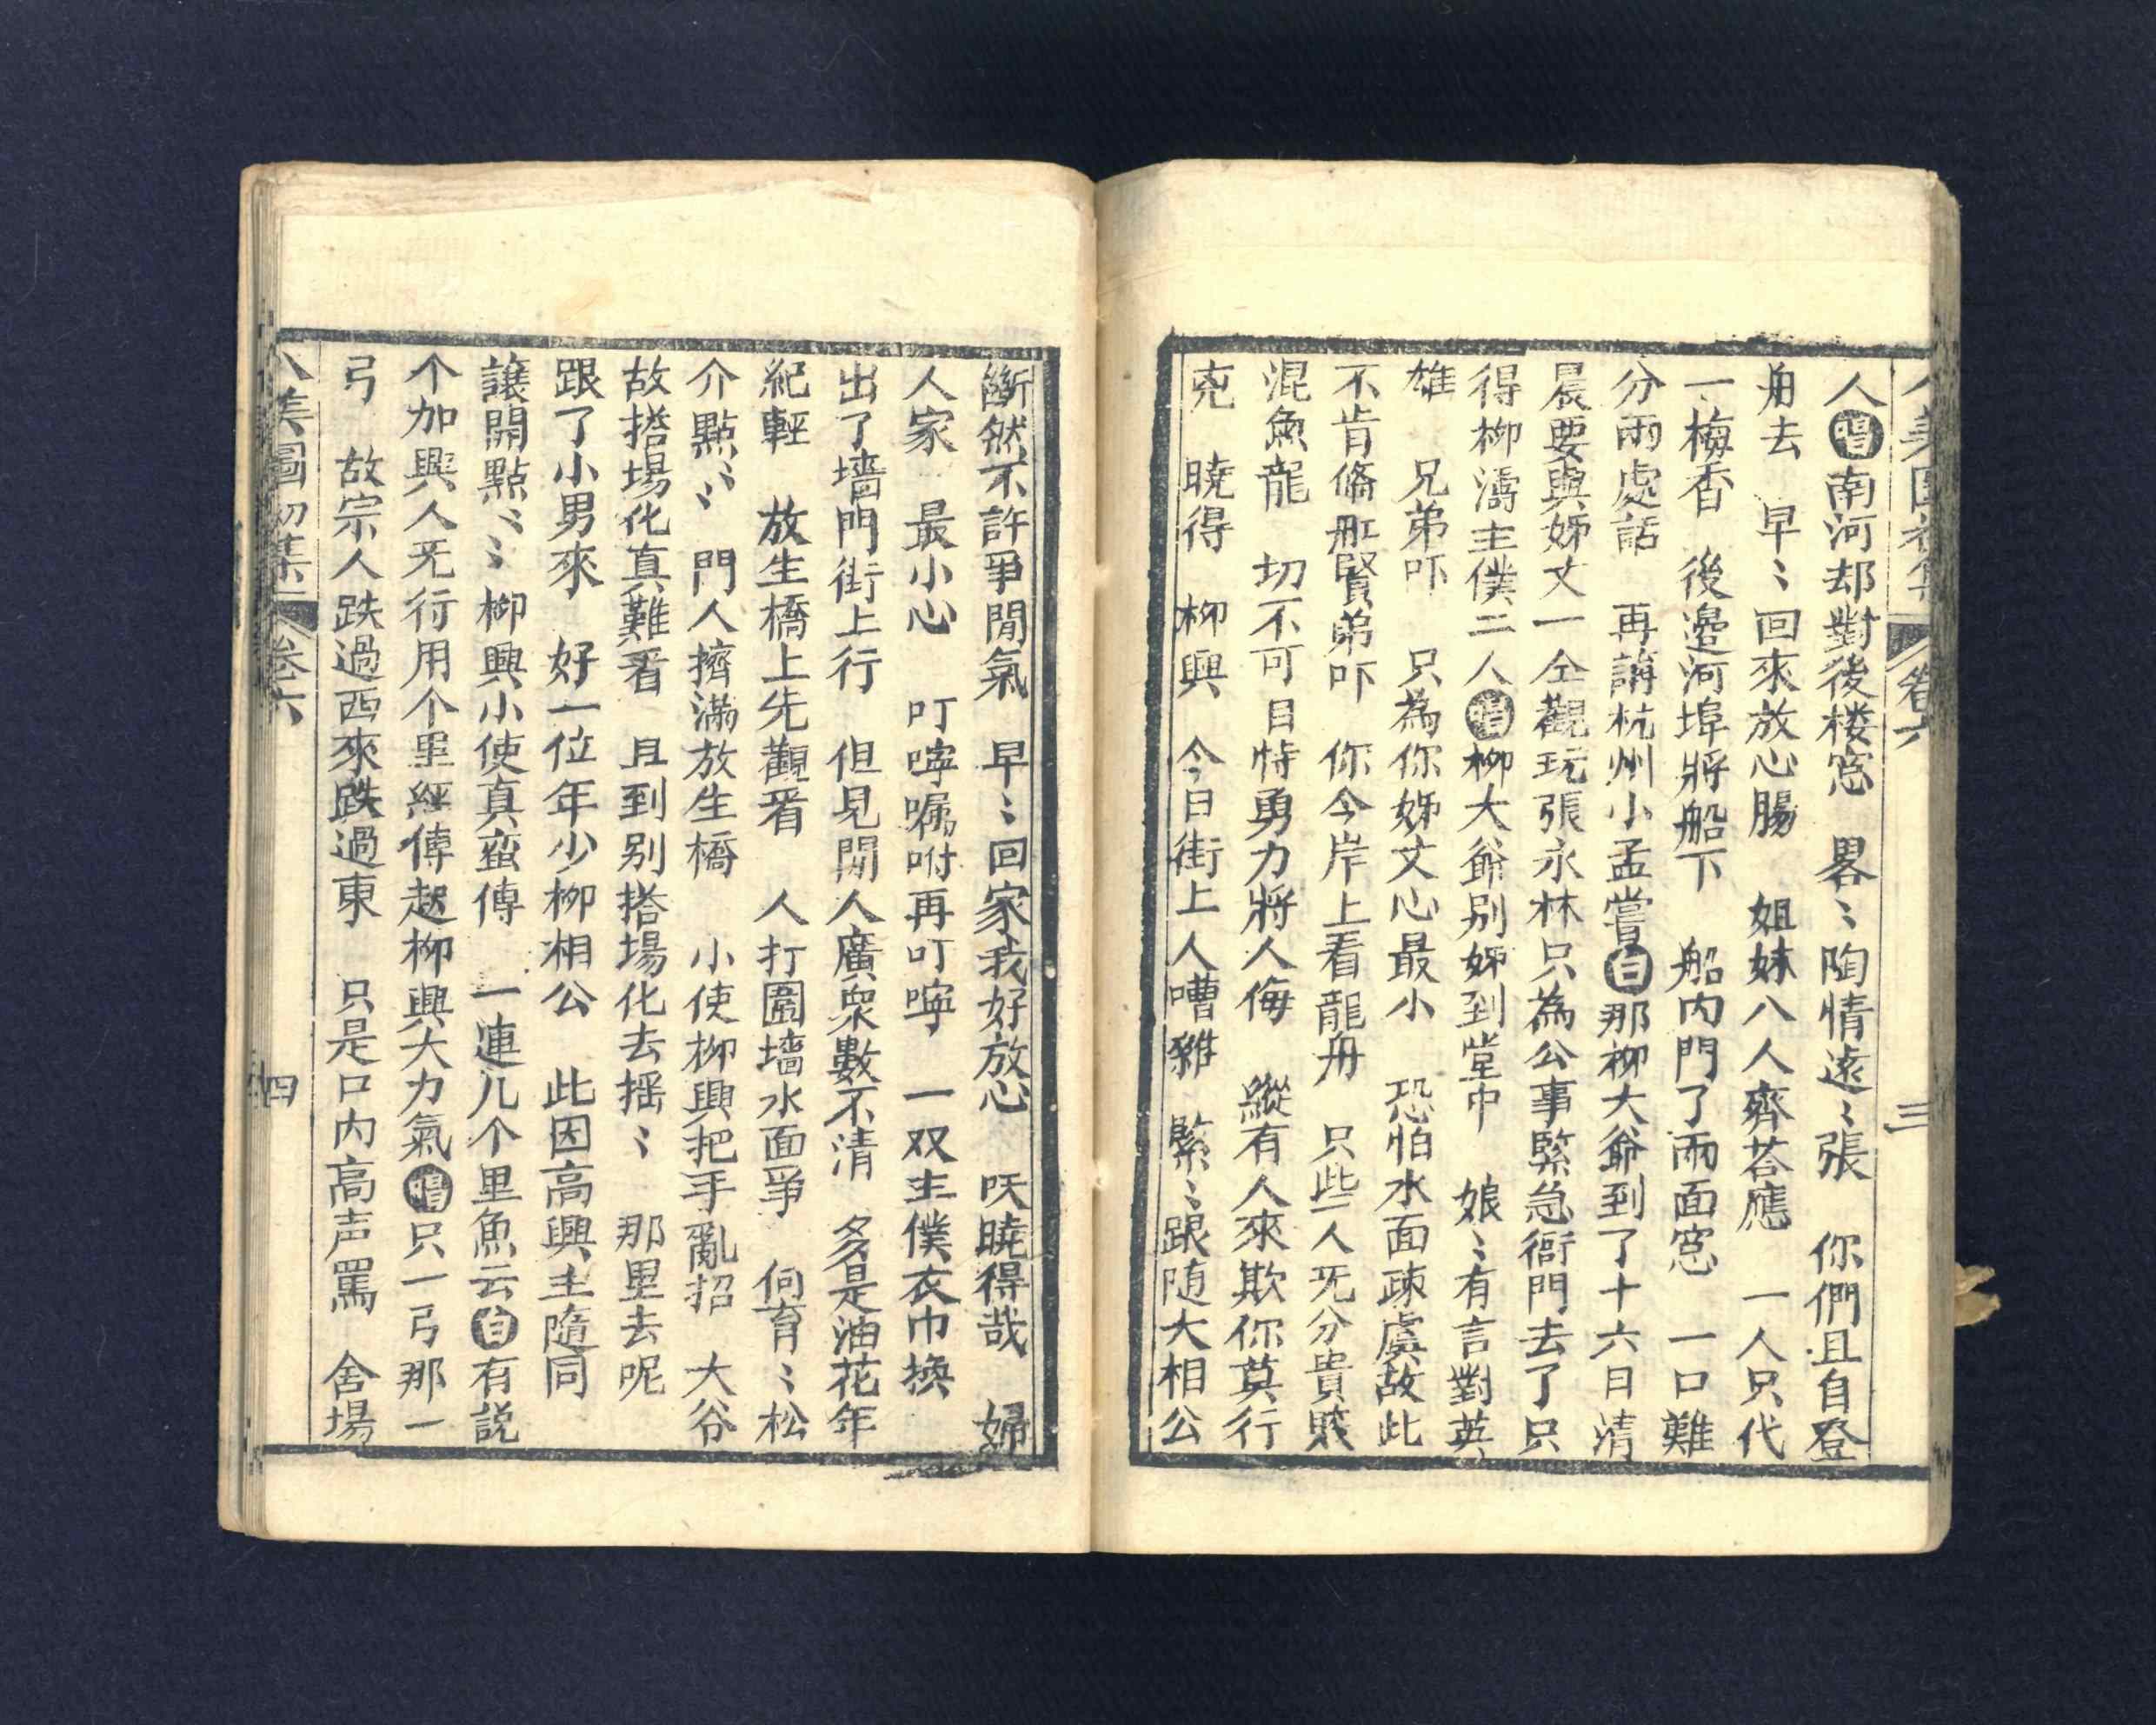 八美圖初集 卷六 三
人唱南河却對後楼窓 畧〻陶情遠〻張 你們且自登
舟去 早〻回來放心腸 姐妹八人齊荅應 一人只代
一梅香 後邊河埠將船下 船内門了兩面窓 一口難
分兩處話 再講杭州小孟嘗白那柳大爺到了十六日清
晨要與姊丈一仝觀玩張永林只為公事緊急衙門去了只
得柳濤主僕二人唱柳大爺別姊到堂中 娘〻有言對英
雄 兄弟吓 只為你姊丈心最小 恐怕水面疎虞故此
不肯僱舡賢弟吓 你今岸上看龍舟 只些人旡分貴賤
混魚龍 切不可目恃勇力將人侮 縱有人來欺你莫行
兇 曉得 柳興 今日街上人嘈雜 緊〻跟随大相公
斷然不許爭閒氣 早〻回家我好放心 㕵曉得哉 婦
人家 最小心 叮嚀嘱咐再叮嚀 一双主僕衣巾換
出了墻門街上行 但見閒人廣眾數不清 多是油花年
紀輕 放生橋上先觀看 人打圍墻水面爭 伺育〻松
介點〻〻 門人擠滿放生橋 小使柳興把手亂招 大爷
故搭場化真難看 且到別搭場化去揺〻 那里去呢
跟了小男來 好一位年少柳相公 此因高興主隨同
讓開點〻〻柳興小使真蛮傳 一連几个里魚云白有説
个加興人旡行用个里經傳趂柳興大力氣唱只一弓那一
弓 故宗人跌過西來跌過東 只是口内高声駡 舍場
八美圖初集 卷六 四